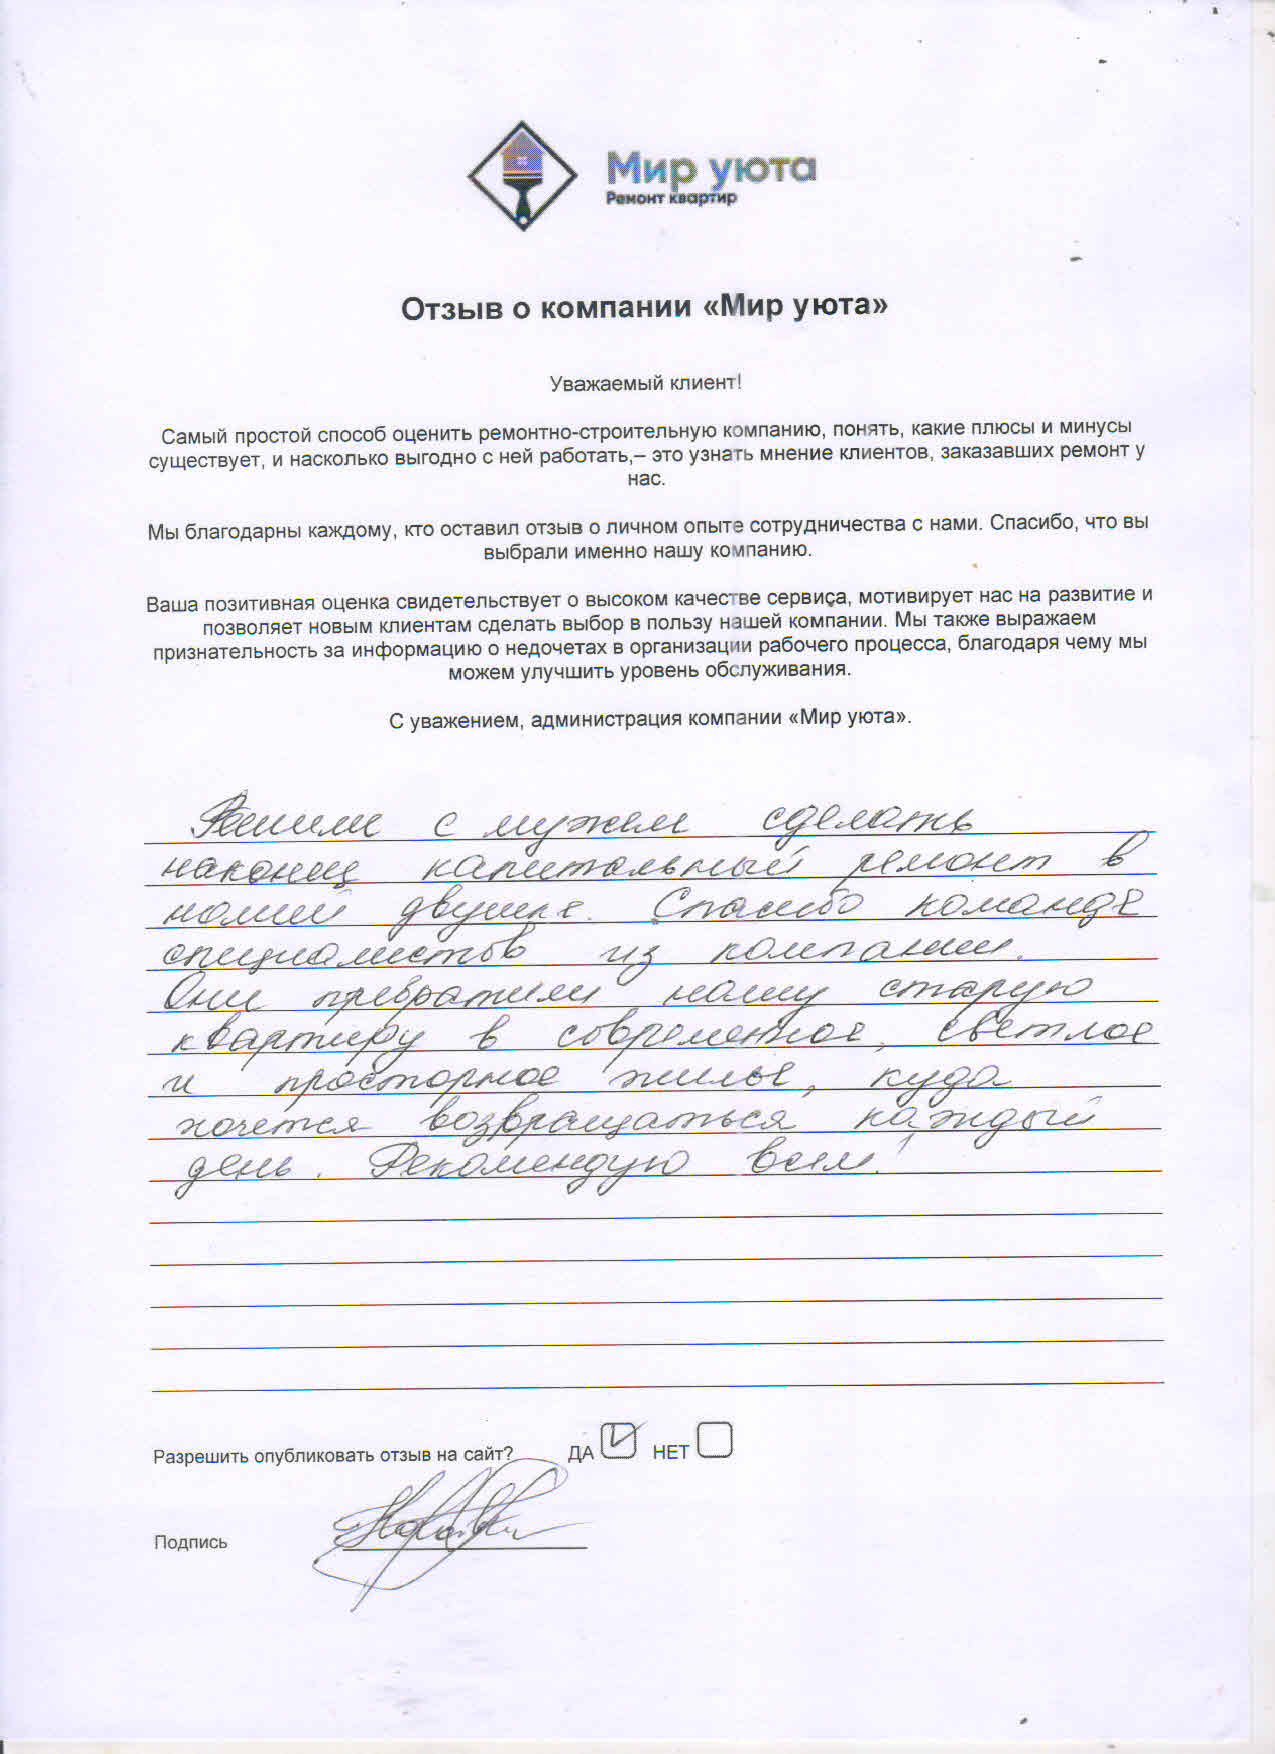 Мир уюта
Ремонт квартир
Отзыв о компании «Мир уюта»
Уважаемый клиент!
Самый простой способ оценить ремонтно-строительную компанию, понять, какие плюсы и минусы
существует, и насколько выгодно с ней работать,– это узнать мнение клиентов, заказавших ремонт у
нас.
Мы благодарны каждому, кто оставил отзыв о личном опыте сотрудничества с нами. Спасибо, что вы
выбрали именно нашу компанию.
Ваша позитивная оценка свидетельствует о высоком качестве сервиса, мотивирует нас на развитие и
позволяет новым клиентам сделать выбор в пользу нашей компании. Мы также выражаем
признательность за информацию о недочетах в организации рабочего процесса, благодаря чему мы
можем улучшить уровень обслуживания.
С уважением, администрация компании «Мир уюта».
Решили с мужем сделать
наконец капитальный ремонт в
нашей двушке. Спасибо команде
специалистов из компании.
Они превратили нашу старую
квартиру в современное, светлое
и просторное жилье, куда
хочется возвращаться каждый
день. Рекомендую всем!
Разрешить опубликовать отзыв на сайт? ДА НЕТ
Подпись